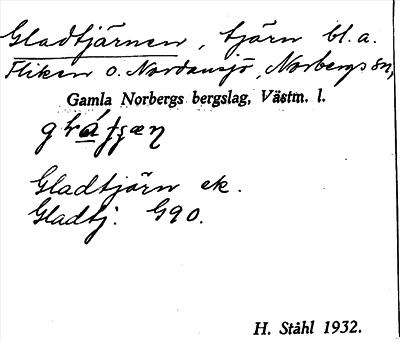 Gladtjärnen, tjärn bl. a.
Fliken o. Nordansjö, Norbergs sn,
Gamla Norbergs bergslag, Västm. l.
Gladtjärn ek.
Gladtj. G90.
H. Ståhl 1932.